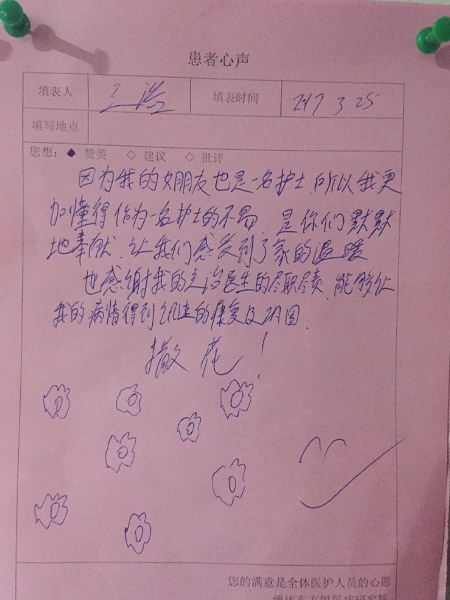 患者心声
填表人 王浩 填表时间 2017 3 25
填写地点
您想: ◆ 赞美 ◇ 建议 ◇ 批评
因为我的女朋友也是一名护士 所以我更
加懂得作为一名护士的不易. 是你们默默
地奉献. 让我们感受到了家的温暖
也感谢我的主治医生的尽职尽责. 能够让
我的病情得到迅速的康复及巩固.
撒花!
您的满意是全体医护人员的心愿